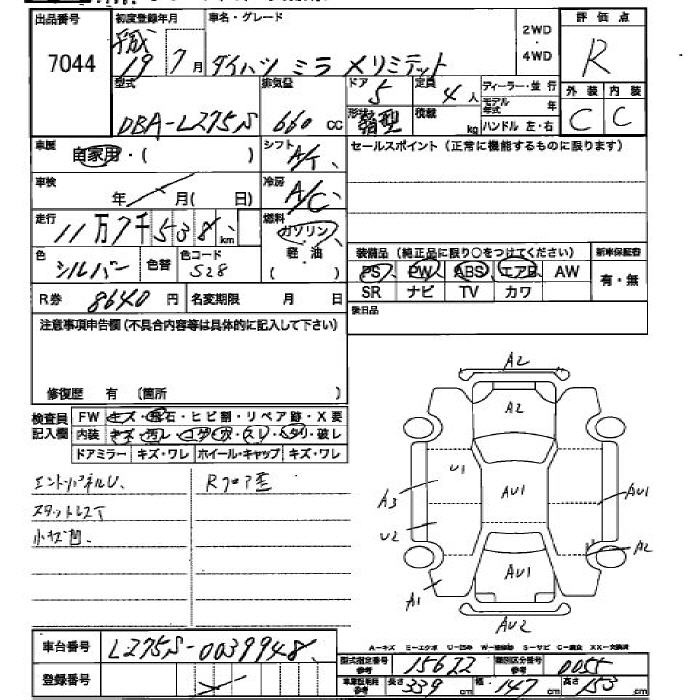 出品番号 初度登録年月 車名・グレード 2WD・4WD 評価点
7044 平成 19 7月 ダイハツ ミラ メリミテット R
型式 排気量 ドア 定員 ディーラー・並行 外装 内装
DBA-L275S 660 cc 5 4人 モデル年式 年 C C
形状 箱型 積載 kg ハンドル 左・右
車歴 自家用・( ) シフト A/T セールスポイント(正常に機能するものに限ります)
車検 年 月( 日) 冷房 A/C
走行 11万7千538km 燃料 ガソリン・軽油 ( )
色 シルバー 色替 色コード S28
装備品(純正品に限り○をつけてください) 新車保証書
PS PW ABS エアB AW 有・無
SR ナビ TV カワ
R券 8640円 名変期限 月 日 後日品
注意事項申告欄(不具合内容等は具体的に記入して下さい)
修復歴 有 〔箇所 )
検査員記入欄 FW キズ・飛石・ヒビ割・リペア跡・X要
内装 キズ・汚レ・コゲ・穴・スレ・タリ・破レ
ドアミラー キズ・ワレ ホイール・キャップ キズ・ワレ
Rフロア歪
小キズ凹
A2
A2
U1
A3 AU1 AU1
U2
A2
AU1
A1
AU2
A-キズ E-エクボ U-凹み W-補修跡 S-サビ C-腐食 XX-交換済
車台番号 L275S-0039948
登録番号
型式指定番号 参考 15622 類別区分番号 参考 0055
車庫証明用 参考 長さ 339cm 幅 147cm 高さ 153cm